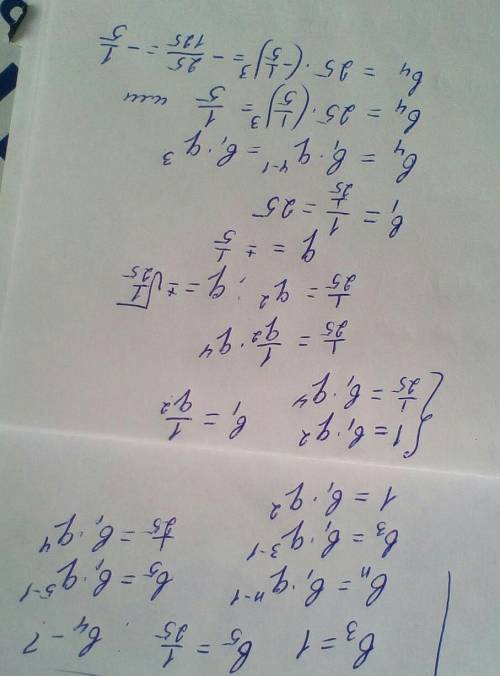 b₃ = 1   b₅ = 1/25 ; b₄ - ?
bₙ = b₁ · qⁿ⁻¹   b₅ = b₁ · q⁵⁻¹
b₃ = b₁ · q³⁻¹   1/25 = b₁ · q⁴
1 = b₁ · q²
{ 1 = b₁ · q²   b₁ = 1/q²
{ 1/25 = b₁ · q⁴
1/25 = 1/q² · q⁴
1/25 = q² ; q = ±√(1/25)
q = ± 1/5
b₁ = 1/(1/25) = 25
b₄ = b₁ · q⁴⁻¹ = b₁ · q³
b₄ = 25 · (1/5)³ = 1/5 или
b₄ = 25 · (-1/5)³ = - 25/125 = - 1/5